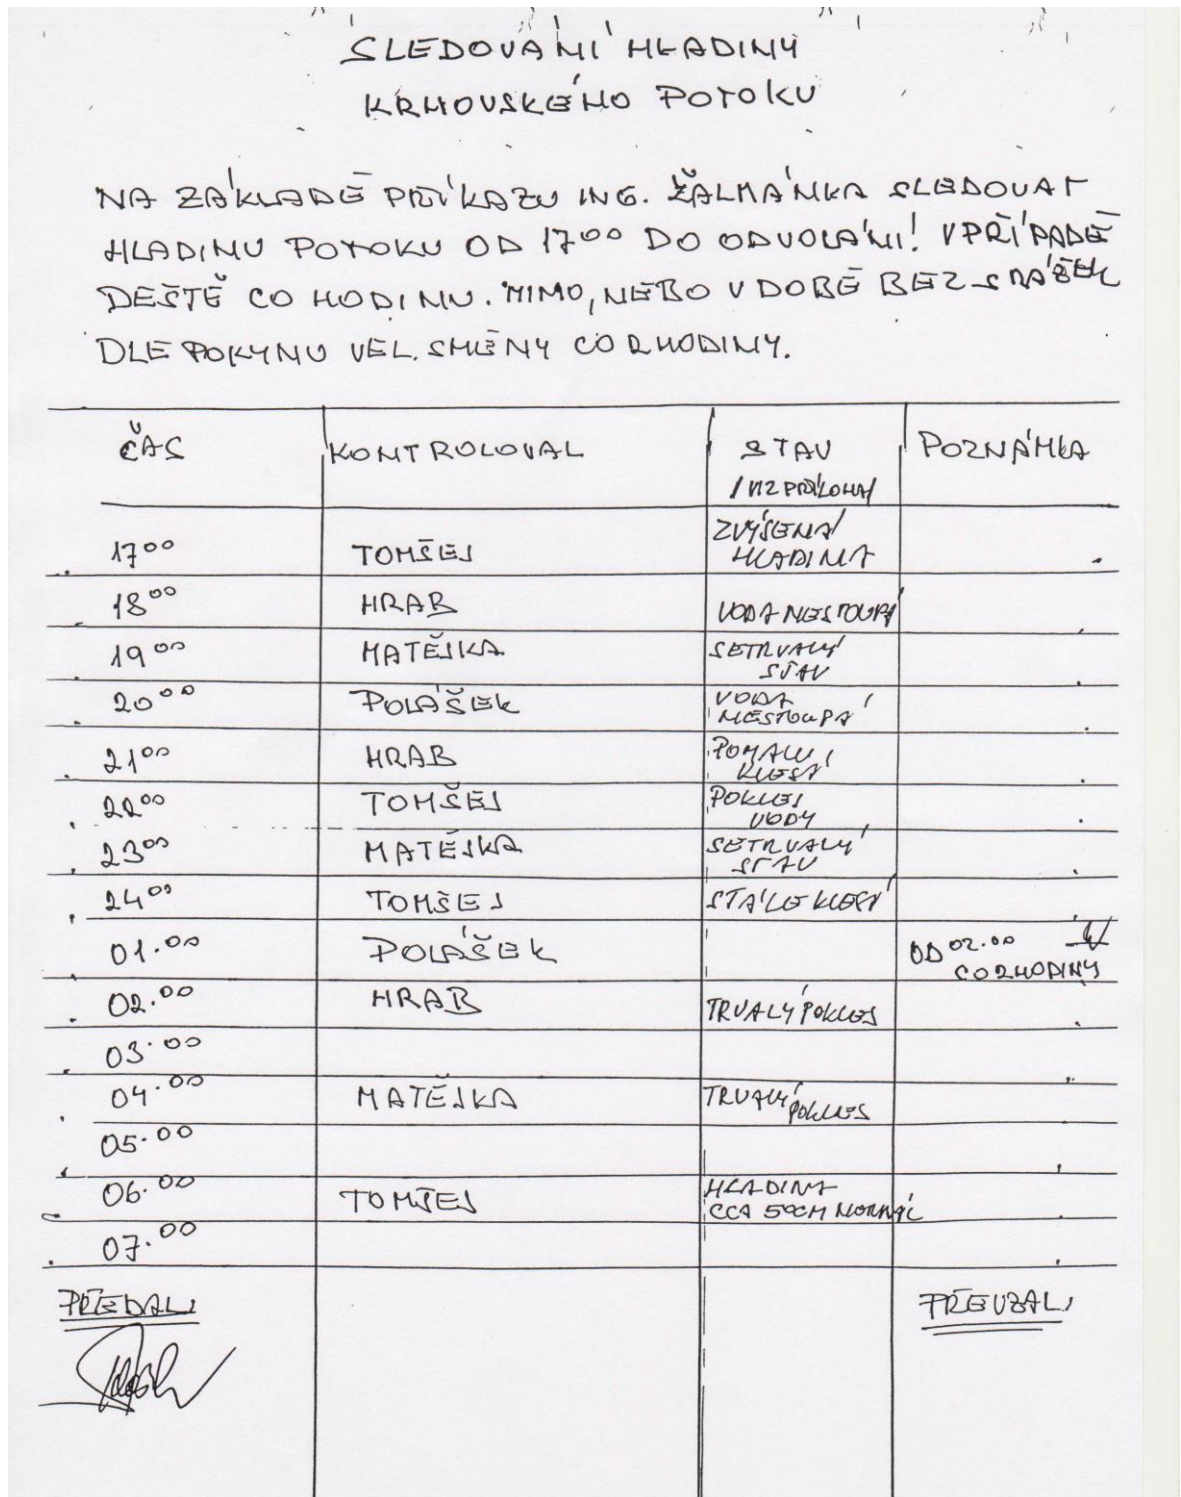 SLEDOVÁNÍ HLADINY
KRHOVSKÉHO POTOKU
NA ZÁKLADĚ PŘÍKAZU ING. ŽÁLMÁNKA SLEDOVAT
HLADINU POTOKU OD 17⁰⁰ DO ODVOLÁNÍ! V PŘÍPADĚ
DEŠTĚ CO HODINU. MIMO, NEBO V DOBĚ BEZ SRÁŽEK
DLE POKYNU VEL. SMĚNY CO 2 HODINY.
ČAS KONTROLOVAL STAV POZNÁMKA
/VIZ PŘÍLOHA/
17⁰⁰ TOMŠEJ ZVÝŠENÁ HLADINA
18⁰⁰ HRAB VODA NESTOUPÁ
19⁰⁰ MATĚJKA SETRVALÝ STAV
20⁰⁰ POLÁŠEK VODA NESTOUPÁ
21⁰⁰ HRAB POMALU KLESÁ
22⁰⁰ TOMŠEJ POKLES VODY
23⁰⁰ MATĚJKA SETRVALÝ STAV
24⁰⁰ TOMŠEJ STÁLE KLESÁ
01.⁰⁰ POLÁŠEK OD 02.⁰⁰ CO 2 HODINY
02.⁰⁰ HRAB TRVALÝ POKLES
03.⁰⁰
04.⁰⁰ MATĚJKA TRVALÝ POKLES
05.⁰⁰
06.⁰⁰ TOMŠEJ HLADINA CCA 50CM NORMÁL
07.⁰⁰
PŘEDALI PŘEVZALI